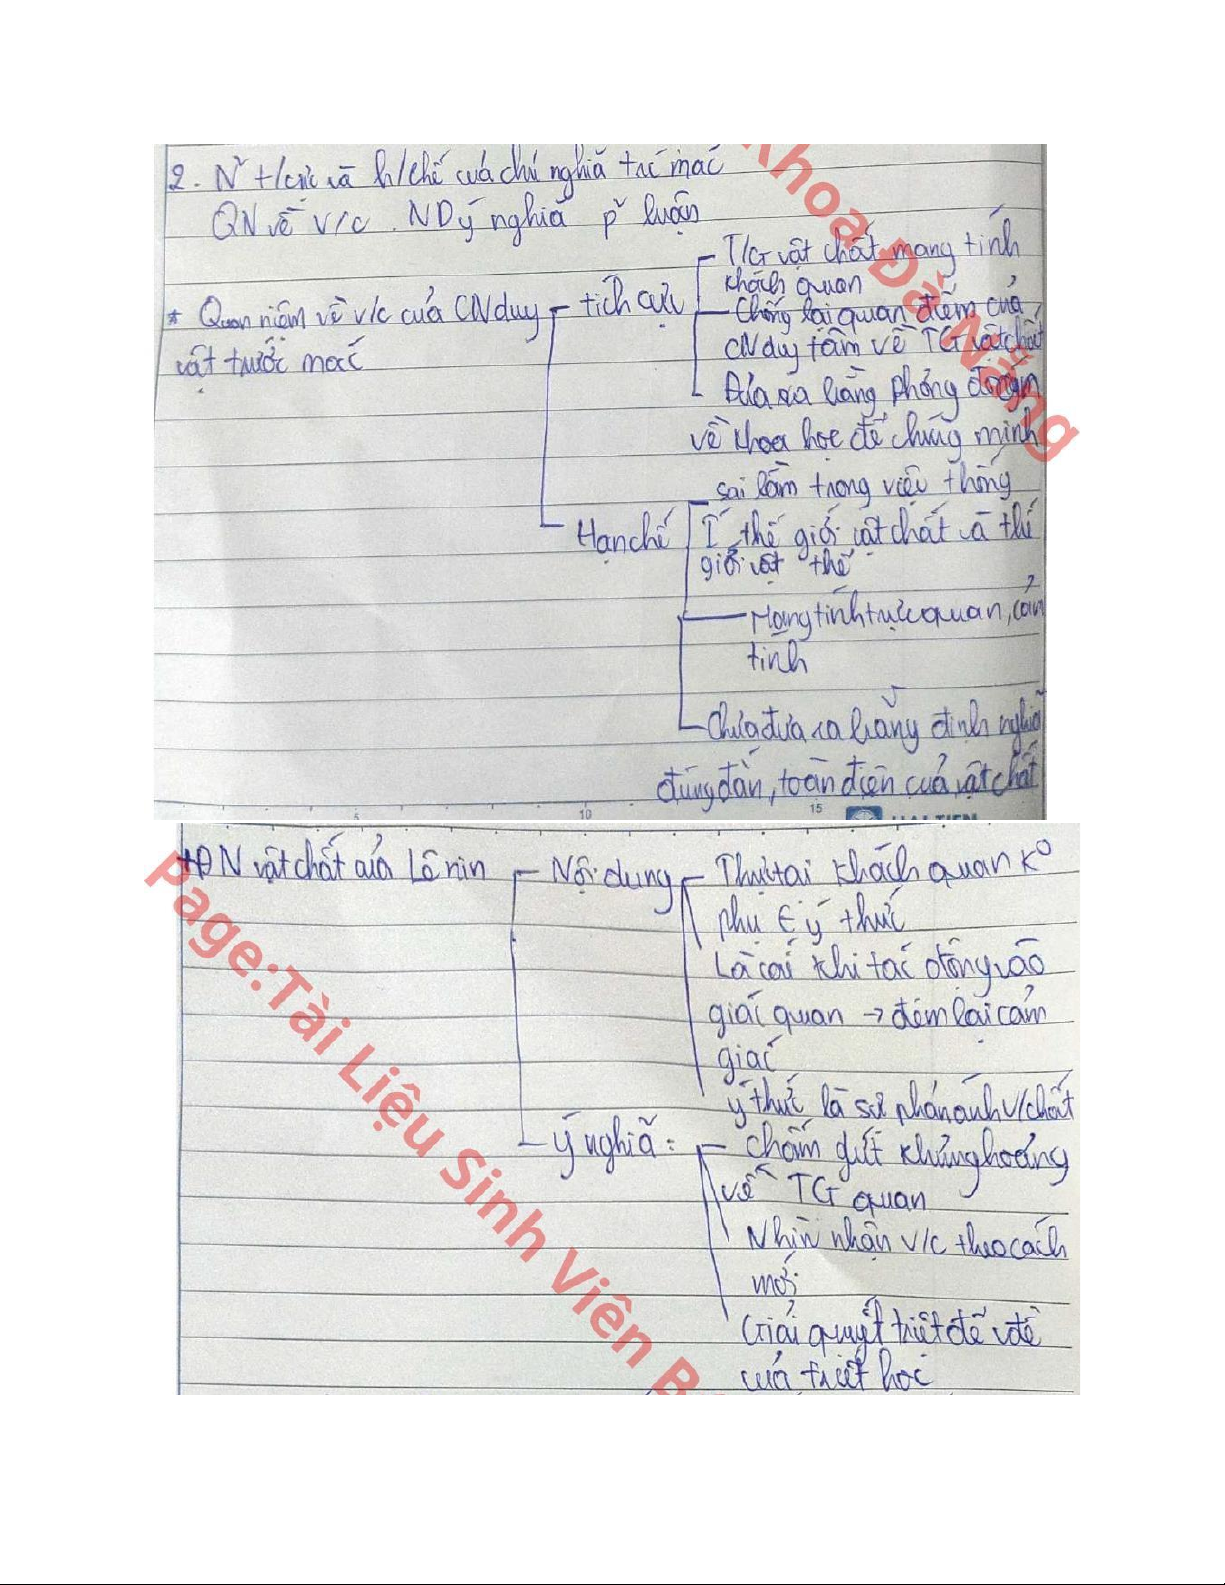 2. N~ t/cực và h/chế của chủ nghĩa trc mác
QN về v/c. ND ý nghĩa p² luận
* Quan niệm về v/c của CN duy
vật trước mác
tích cực
T/G vật chất mang tính
khách quan
Chống lại quan điểm của
CN duy tâm về TG vật chất
Đưa ra hàng phỏng đoán
về khoa học để chứng minh
Hạn chế
sai lầm trong việc thống
I thế giới vật chất và thế
giới vật thể
Mang tính trực quan, cảm
tính
Chưa đưa ra hẳng định nghĩa
đúng đắn, toàn diện của vật chất
5 10 15
HẢI TIẾN
+ ĐN vật chất của Lê nin
Nội dung
Thực tại khách quan ko
phụ ∈ ý thức
Là cái khi tác động vào
giác quan → đem lại cảm
giác
ý thức là sự phản ánh v/chất
Ý nghĩa:
chấm dứt khủng hoảng
về TG quan
Nhìn nhận v/c theo cách
mới
Giải quyết triệt để vđề
của triết học
Khoa Đà Nẵng
Page:Tài Liệu Sinh Viên B